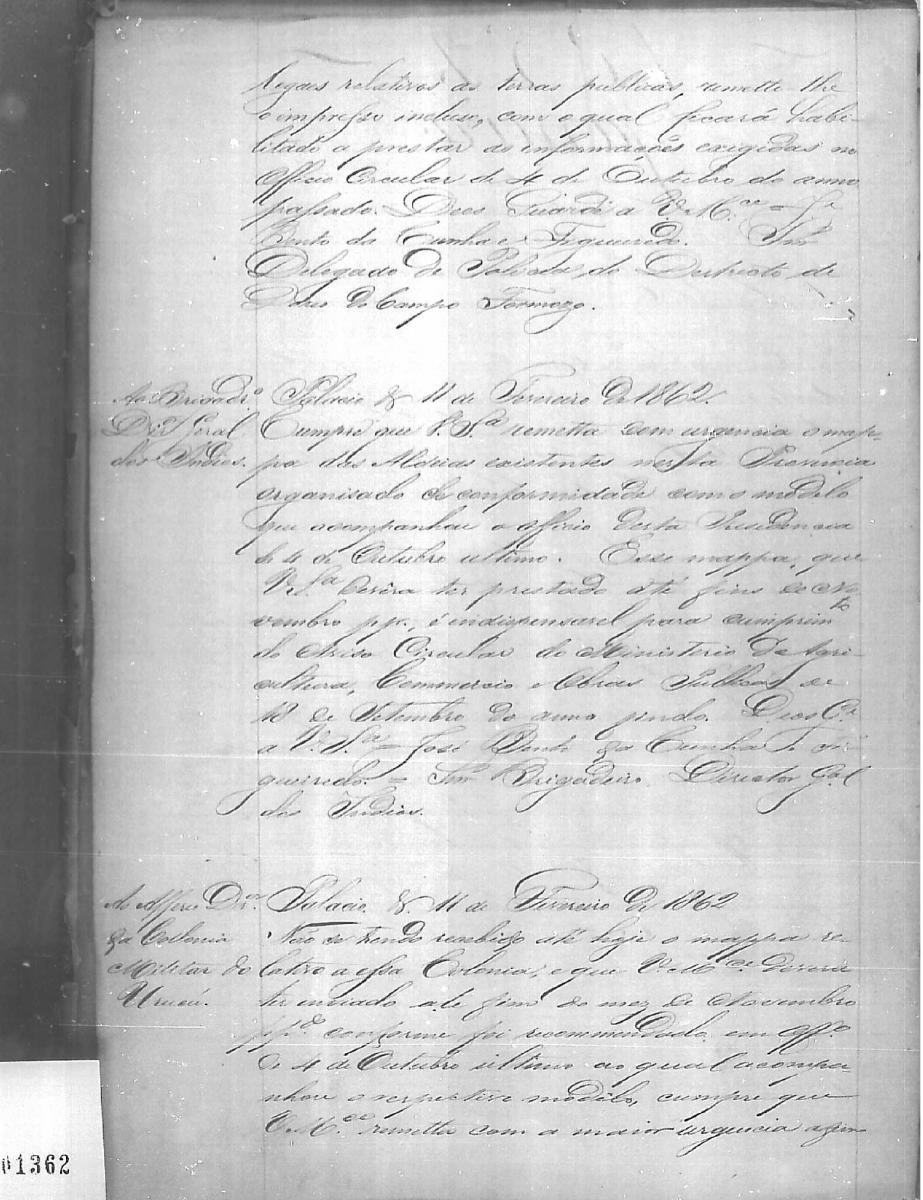 legaes relativos as terras publicas, remetto-lhe
o impresso incluso, com o qual ficará habi-
litado a prestar as informações exigidas no
Officio Circular de 4 de Outubro do anno
passado. Deos Guarde a V. M.ce = J.é
Bento da Cunha e Figueiredo. Snr.
Delegado de Policia do Destricto de
do Campo Formozo.
Ao Brigad.ro
Dir.or Geral
dos Indios.
Palacio & 11 de Fevereiro de 1862.
Cumpre que V. S.ª remetta com urgencia o map-
pa das Aldeias existentes nesta Provincia
organisado de conformidade com o modelo
que acompanhou o officio desta Presidencia
de 4 de Outubro ultimo. Esse mappa, que
V. S.ª devera ter prestado até fins de No-
vembro pp., é indispensavel para cumprim.to
do Aviso Circular do Ministerio da Agri-
cultura, Commercio e Obras Publicas de
18 de Setembro do anno findo. Deos G.e
a V. S.ª = José Bento da Cunha e Fi-
gueiredo. = Snr. Brigadeiro Director G.al
dos Indios.
Ao Alferes Dir.or
da Collonia
Militar do
Urucú.
Palacio & 11 de Fevereiro de 1862
Não se tendo recebido até hoje o mappa re-
lativo a essa Colonia, e que V. M.ce devera
ter enviado até fim do mez de Novembro
pp.º conforme foi recommendado em off.º
de 4 de Outubro ultimo ao qual acompa-
nhou o respectivo modelo, cumpre que
V. M.ce remetta com a maior urgencia afim
01362